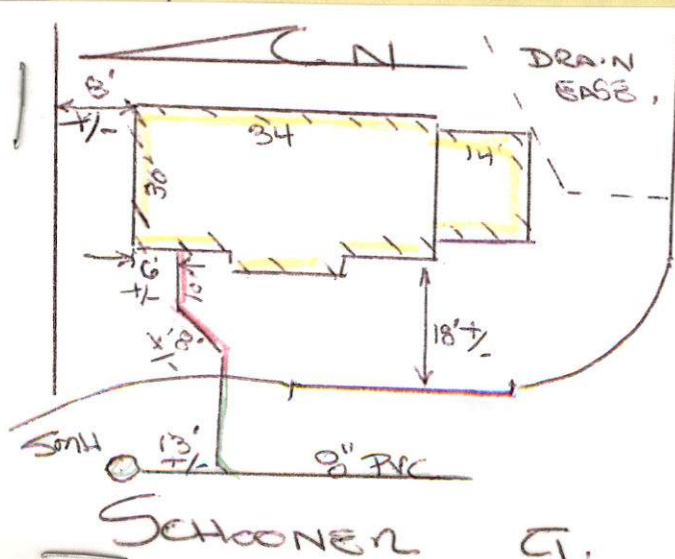 N
DRAIN
EASE.
8'
+/-
34
14'
30'
6'
+/-
18' +/-
8'
+/-
SMH
13'
+/-
8" PVC
SCHOONER CT.